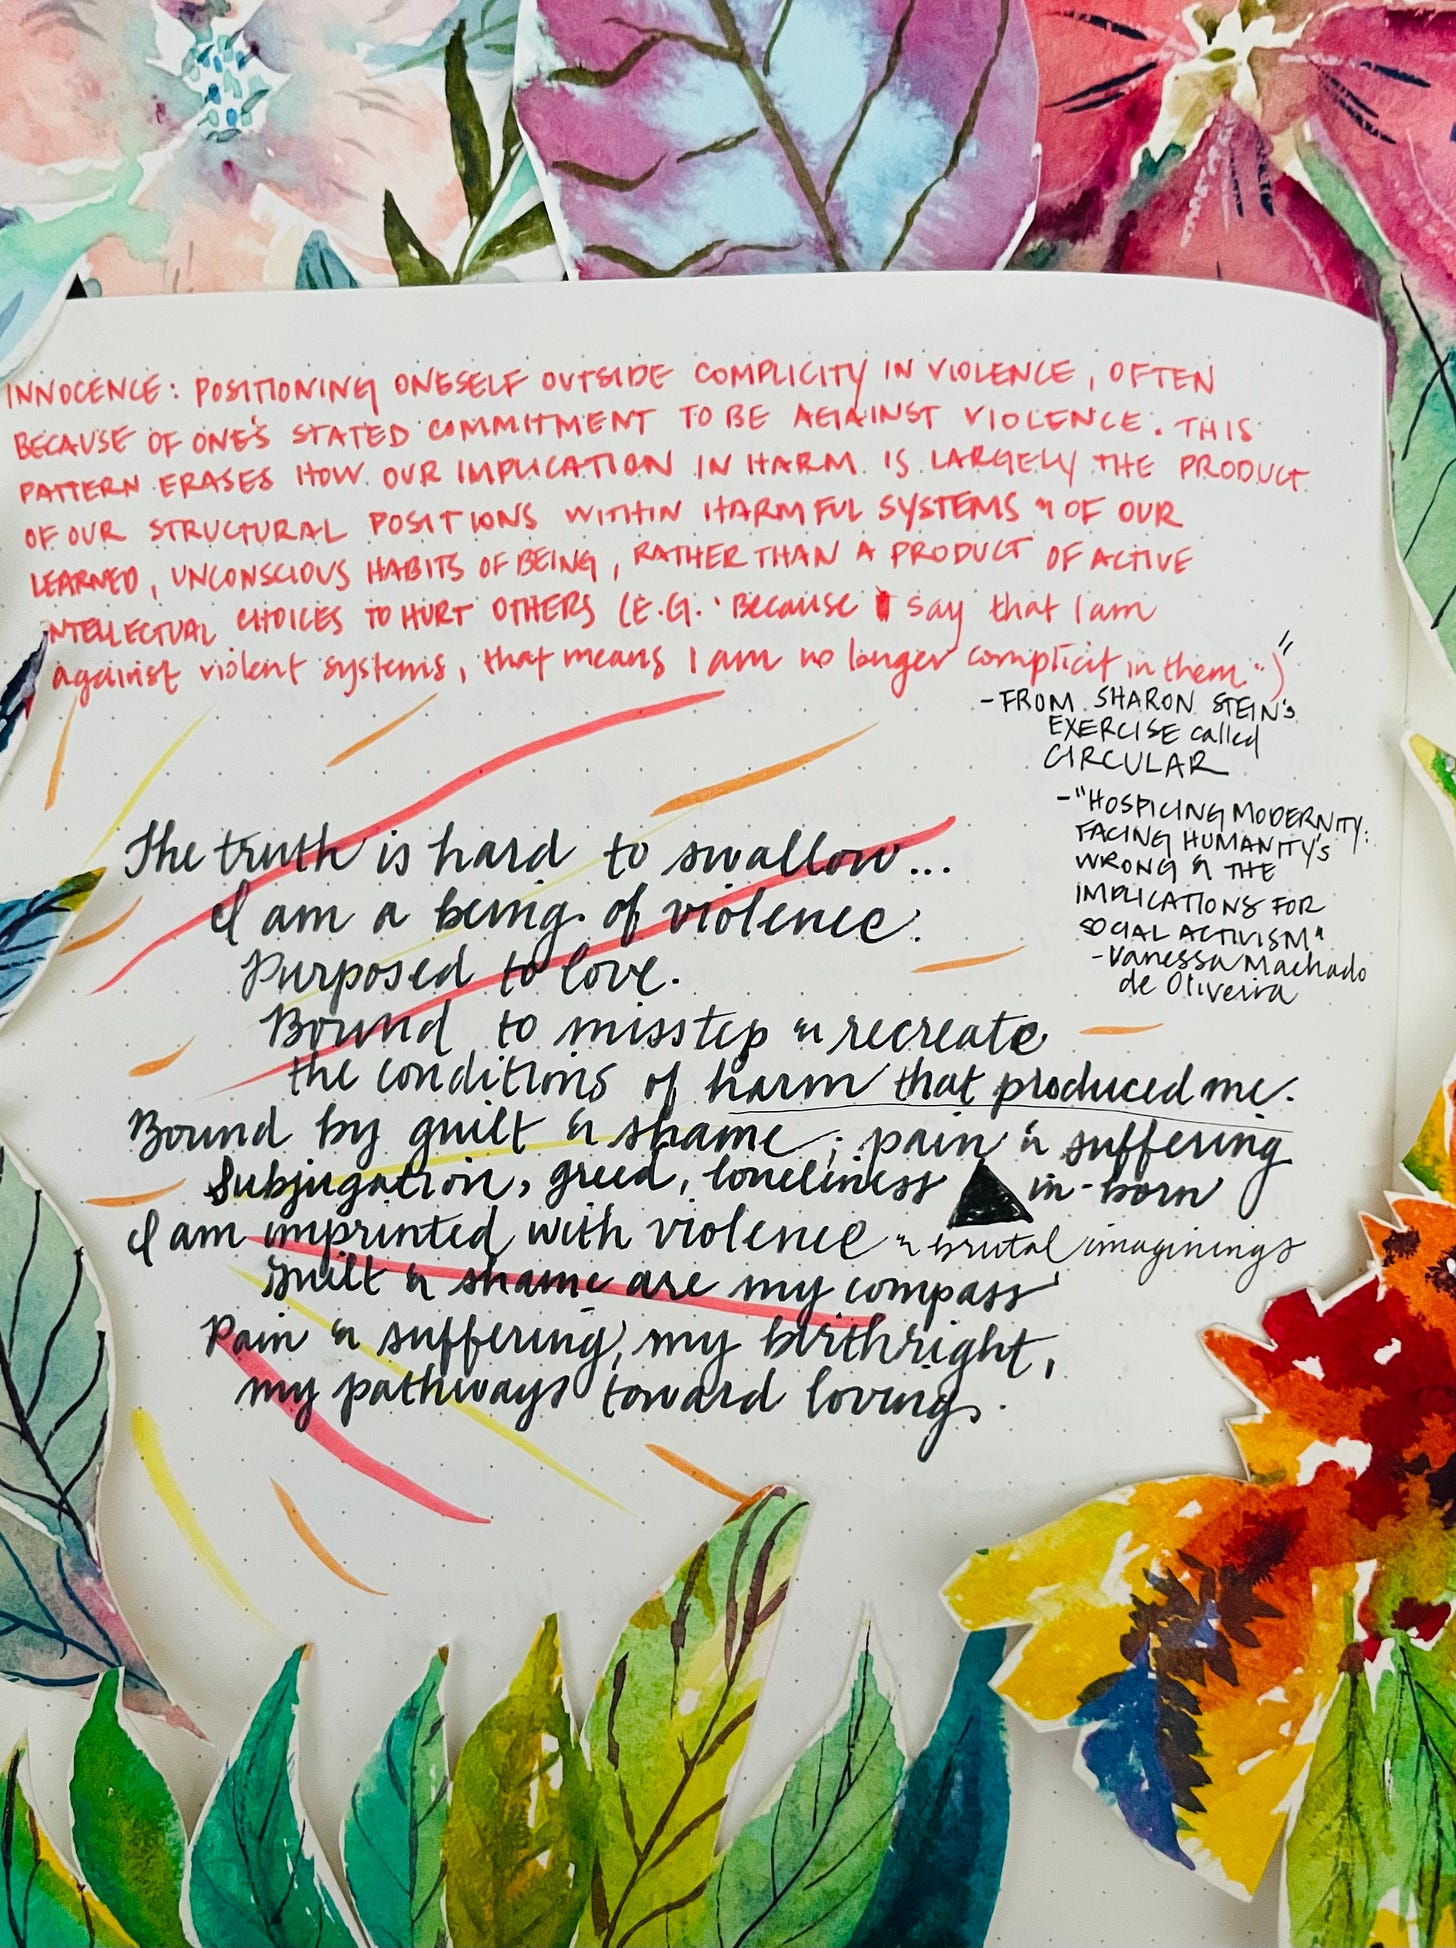 INNOCENCE: POSITIONING ONESELF OUTSIDE COMPLICITY IN VIOLENCE, OFTEN
BECAUSE OF ONE'S STATED COMMITMENT TO BE AGAINST VIOLENCE. THIS
PATTERN ERASES HOW OUR IMPLICATION IN HARM IS LARGELY THE PRODUCT
OF OUR STRUCTURAL POSITIONS WITHIN HARMFUL SYSTEMS & OF OUR
LEARNED, UNCONSCIOUS HABITS OF BEING, RATHER THAN A PRODUCT OF ACTIVE
INTELLECTUAL CHOICES TO HURT OTHERS (E.G. 'Because I say that I am
against violent systems, that means I am no longer complicit in them")"
- FROM SHARON STEIN'S
EXERCISE called
CIRCULAR
- "HOSPICING MODERNITY:
FACING HUMANITY'S
WRONG & THE
IMPLICATIONS FOR
SOCIAL ACTIVISM"
- Vanessa Machado
de Oliveira
The truth is hard to swallow...
I am a being of violence.
Purposed to love.
Bound to misstep & recreate
the conditions of harm that produced me.
Bound by guilt & shame; pain & suffering
Subjugation, greed, loneliness in-born
I am imprinted with violence & brutal imaginings
guilt & shame are my compass
Pain & suffering, my birthright,
my pathways toward loving.